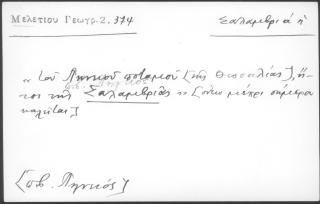 Μελετίου Γεωγρ. 2, 374
Σαλαμβριά ἡ
„ τοῦ Πηνειοῦ ποταμοῦ [τῆς Θεσσαλίας], ἤ-
τοι τῆς Σαλαμβριᾶς " [οὕτω μέχρι σήμερον
καλεῖται]
[πβ. Πηνειός]